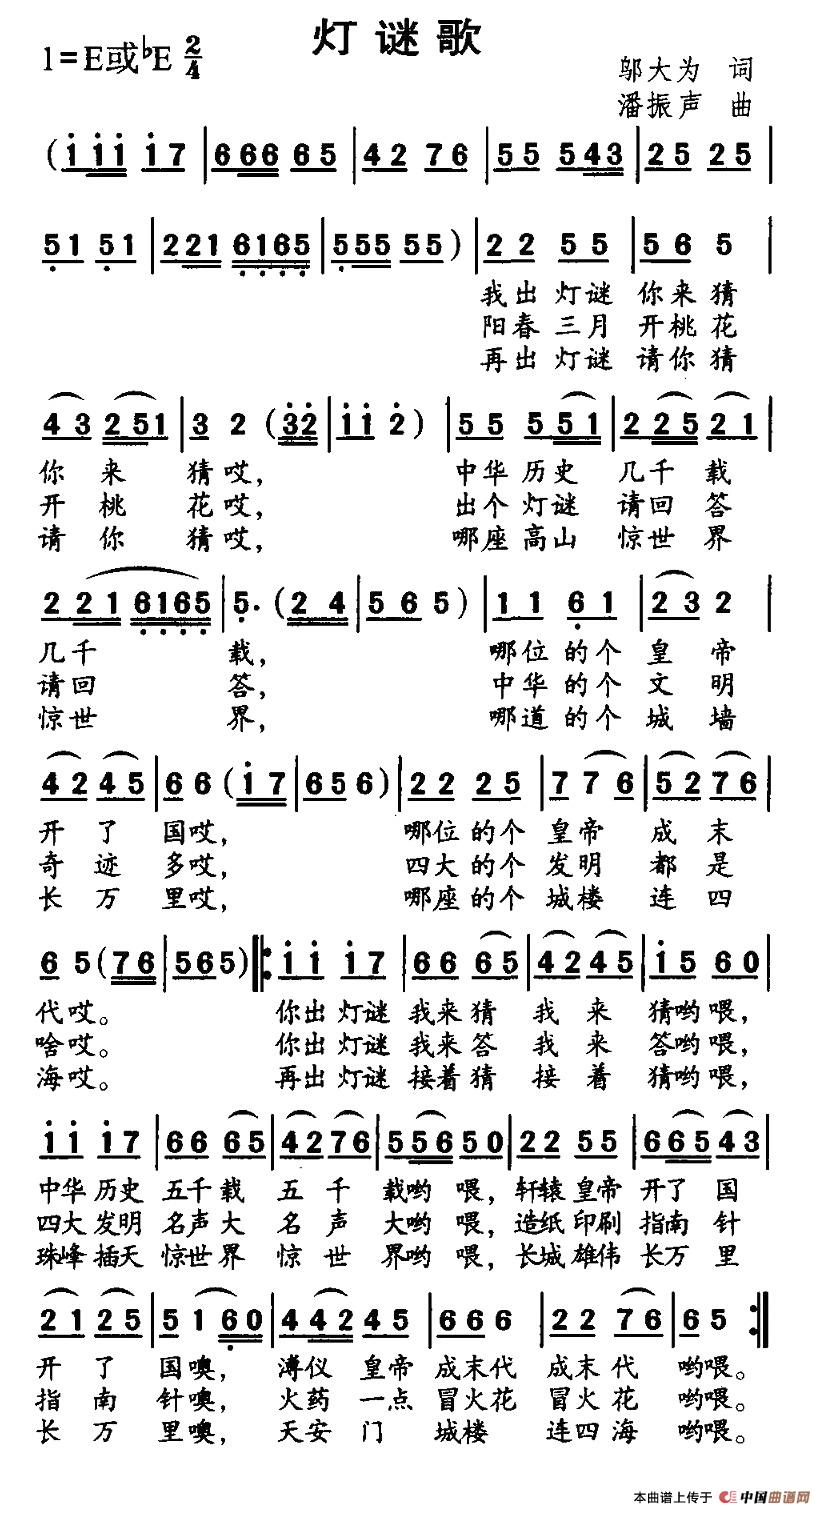 灯谜歌
1=E或♭E 2/4
邬大为 词
潘振声 曲
( i i i i 7 | 6 6 6 6 5 | 4 2 7 6 | 5 5 5 4 3 | 2 5 2 5 |
5 1 5 1 | 2 2 1 6 1 6 5 | 5 5 5 5 5 ) | 2 2 5 5 | 5 6 5 |
我出灯谜 你来猜
阳春三月 开桃花
再出灯谜 请你猜
4 3 2 5 1 | 3 2 ( 3 2 | i i 2 ) | 5 5 5 5 1 | 2 2 5 2 1 |
你来猜哎, 中华历史几千载
开桃花哎, 出个灯谜请回答
请你猜哎, 哪座高山惊世界
2 2 1 6 1 6 5 | 5. ( 2 4 | 5 6 5 ) | 1 1 6 1 | 2 3 2 |
几千载, 哪位的个皇帝
请回答, 中华的个文明
惊世界, 哪道的个城墙
4 2 4 5 | 6 6 ( i 7 | 6 5 6 ) | 2 2 2 5 | 7 7 6 | 5 2 7 6 |
开了国哎, 哪位的个皇帝成末
奇迹多哎, 四大的个发明都是
长万里哎, 哪座的个城楼连四
6 5 ( 7 6 | 5 6 5 ) |: i i i 7 | 6 6 6 5 | 4 2 4 5 | i 5 6 0 |
代哎。 你出灯谜我来猜我来猜哟喂,
啥哎。 你出灯谜我来答我来答哟喂,
海哎。 再出灯谜接着猜接着猜哟喂,
i i i 7 | 6 6 6 5 | 4 2 7 6 | 5 5 6 5 0 | 2 2 5 5 | 6 6 5 4 3 |
中华历史五千载五千载哟喂,轩辕皇帝开了国
四大发明名声大名声大哟喂,造纸印刷指南针
珠峰插天惊世界惊世界哟喂,长城雄伟长万里
2 1 2 5 | 5 1 6 0 | 4 4 2 4 5 | 6 6 6 | 2 2 7 6 | 6 5 :|
开了国噢, 溥仪皇帝成末代成末代哟喂。
指南针噢, 火药一点冒火花冒火花哟喂。
长万里噢, 天安门城楼连四海哟喂。
本曲谱上传于 中国曲谱网